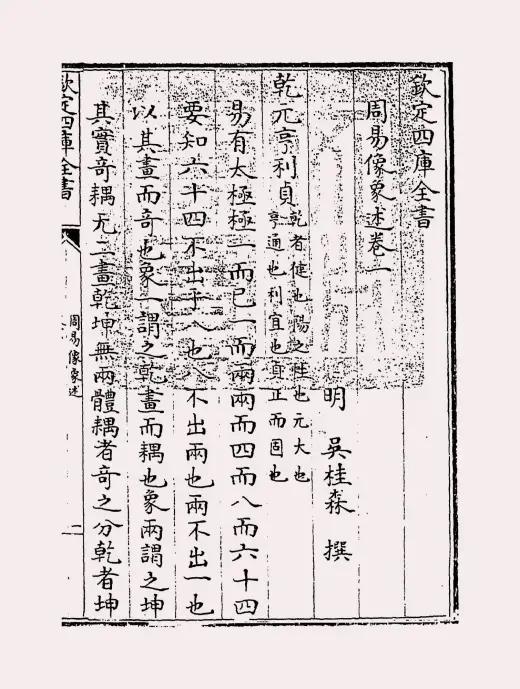 欽定四庫全書
周易像象述卷一
明 吳桂森 撰
乾元亨利貞
乾者健也陽之性也元大也
亨通也利宜也貞正而固也
易有太極極一而已一而兩兩而四而八而六十四
要知六十四不出于八也八不出兩也兩不出一也
以其畫而奇也象一謂之乾畫而耦也象兩謂之坤
其實奇耦无二畫乾坤無兩體耦者奇之分乾者坤
欽定四庫全書
周易像象述